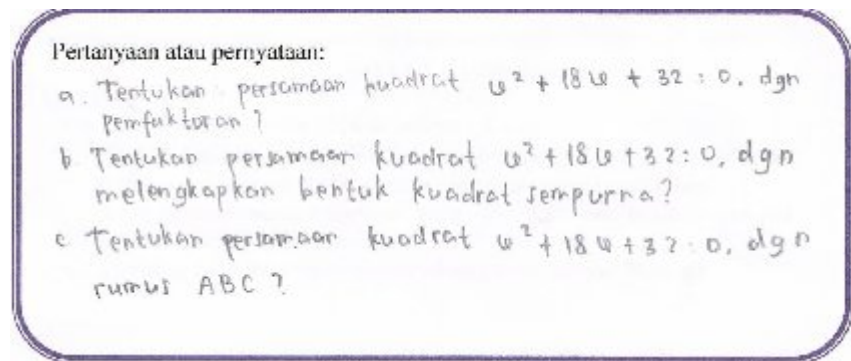 Pertanyaan atau pernyataan:
a. Tentukan persamaan kuadrat w² + 18w + 32 = 0, dgn
pemfaktoran?
b Tentukan persamaan kuadrat w² + 18w + 32 = 0, dgn
melengkapkan bentuk kuadrat sempurna?
c Tentukan persamaan kuadrat w² + 18w + 32 = 0, dgn
rumus ABC?